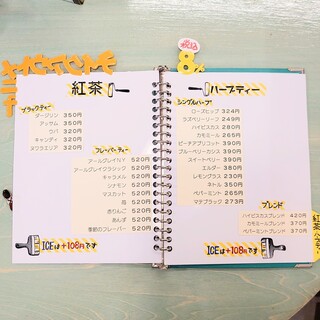 紅茶
ブラックティー
ダージリン 350円
アッサム 350円
ウバ 320円
キャンディ 320円
ヌワラエリア 320円
フレーバーティー
アールグレイNY 520円
アールグレイクラシック 520円
キャラメル 520円
シナモン 520円
マスカット 520円
苺 520円
赤りんご 520円
あんず 520円
季節のフレーバー 520円
ICEは+108円です
税込
8%
ハーブティー
シングルハーブ
ローズヒップ 324円
ラズベリーリーフ 249円
ハイビスカス 280円
カモミール 265円
ピーチアプリコット 390円
ブルーベリーカシス 390円
スイートベリー 390円
エルダー 380円
レモングラス 230円
ネトル 350円
ペパーミント 265円
マテブラック 273円
ブレンド
ハイビスカスブレンド 420円
カモミールブレンド 370円
ペパーミントブレンド 370円
ICEは+108円です
紅茶